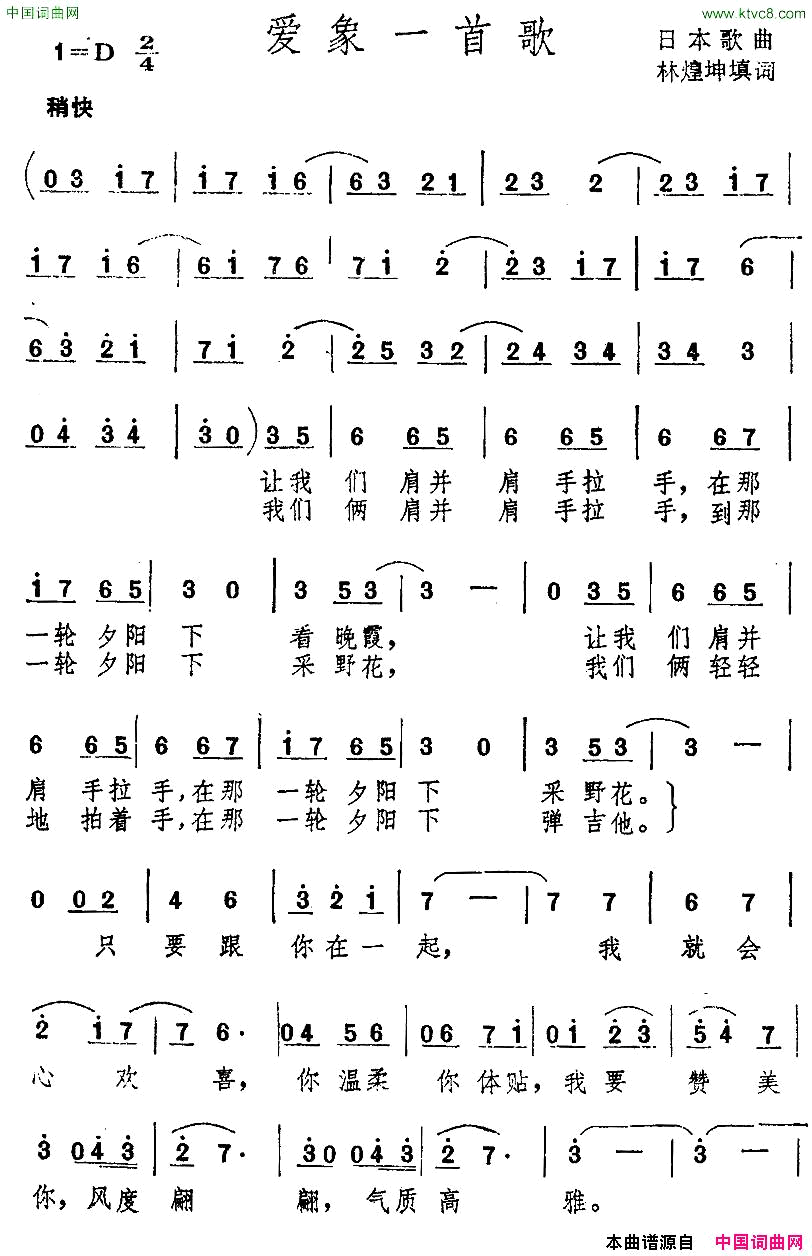 中国词曲网
www.ktvc8.com
爱象一首歌
1=D 2/4
日本歌曲
林煌坤填词
稍快
(0 3 i 7 | i 7 i 6 | 6 3 2 1 | 2 3 2 | 2 3 i 7 |
i 7 i 6 | 6 i 7 6 | 7 i 2̇ | 2̇ 3̇ i 7 | i 7 6 |
6 3̇ 2̇ i | 7 i 2̇ | 2̇ 5 3 2 | 2 4 3 4 | 3 4 3 |
0 4̇ 3̇ 4̇ | 3̇ 0) 3 5 | 6 6 5 | 6 6 5 | 6 6 7 |
让我 们 肩并 肩 手拉 手，在那
我们 俩 肩并 肩 手拉 手，到那
i 7 6 5 | 3 0 | 3 5 3 | 3 — | 0 3 5 | 6 6 5 |
一轮 夕阳 下 看 晚霞， 让我 们 肩并
一轮 夕阳 下 采 野花， 我们 俩 轻轻
6 6 5 | 6 6 7 | i 7 6 5 | 3 0 | 3 5 3 | 3 — |
肩 手拉 手，在那 一轮 夕阳 下 采 野花。
地 拍着 手，在那 一轮 夕阳 下 弹 吉他。
0 0 2 | 4 6 | 3̇ 2̇ i | 7 — | 7 7 | 6 7 |
只 要 跟 你 在 一 起， 我 就 会
2̇ i 7 | 7 6· | 0 4 5 6 | 0 6 7 i | 0 i 2̇ 3̇ | 5̇ 4̇ 7 |
心 欢 喜， 你 温柔 你 体贴，我 要 赞 美
3̇ 0 4̇ 3̇ | 2̇ 7· | 3̇ 0 0 4̇ 3̇ | 2̇ 7· | 3̇ — | 3̇ — |
你，风度 翩 翩，气质 高 雅。
本曲谱源自 中国词曲网